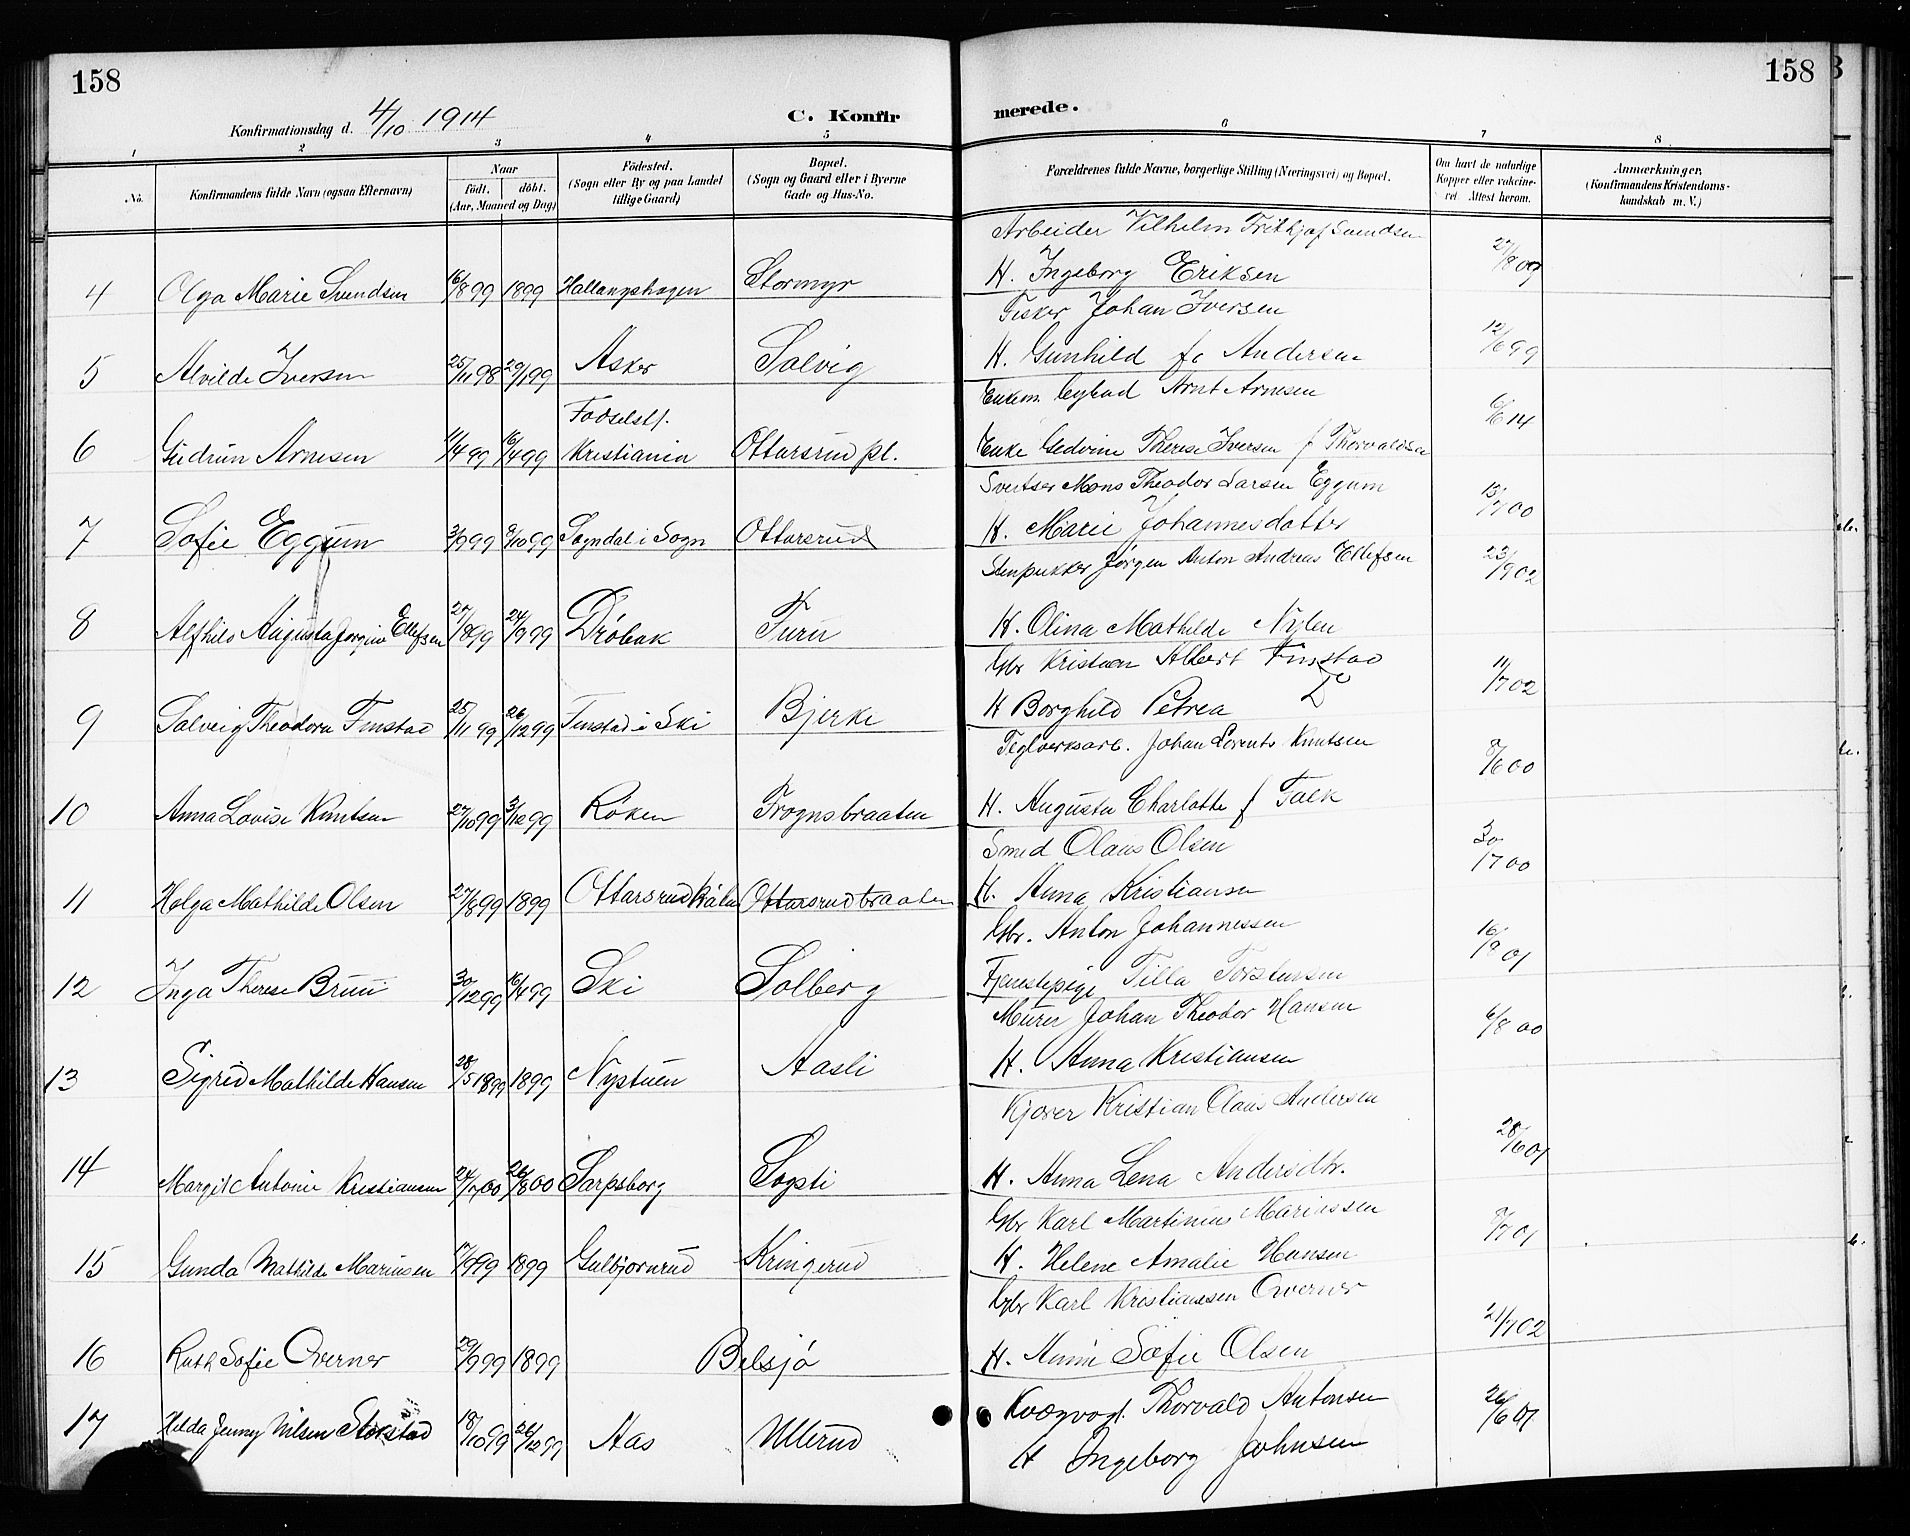 158
158
Konfirmationsdag d. 4/10 1914
C. Konfirmerede.
1 2 3 4 5 6 7 8
No.
Konfirmandens fulde Navn (ogsaa Efternavn)
Naar
födt. döbt.
(Aar, Maaned og Dag)
Födested.
(Sogn eller By og paa Landet
tillige Gaard)
Bopæl.
(Sogn og Gaard eller i Byerne
Gade og Hus-No.
Forældrenes fulde Navne, borgerlige Stilling (Næringsvei) og Bopæl.
Om havt de naturlige
Kopper eller vakcine-
ret Attest herom.
Anmerkninger,
(Konfirmandens Kristendoms-
kundskab m. V.)
Arbeider Vilhelm Frithjof Svendsen
4 Olga Marie Svendsen 16/8 99 1899 Hallangshagen Stormyr H. Ingeborg Eriksen
Fisker Johan Iversen
5 Alvilde Iversen 25/11 98 29/1 99 Asker Solvig H. Gunhild fø Andersen 12/6 99
Enkem. Arnt Arnesen
Fødselst.
6 Gudrun Arnesen 11/4 99 16/4 99 Kristiania Ottarsrud pl. Enke Therese Iversen f Thorvaldsen
Mons Theodor Larsen Eggum
7 Sofie Eggum 3/9 99 8/10 99 Sogndal i Sogn Ottarsrud H. Marie Johannesdatter
Stenpukker Jørgen Anton Andreas Ellefsen 23/9 02
8 Alfhild Augusta Jørgine Ellefsen 27/8 99 24/9 99 Drøbak Furu H. Olina Mathilde Nylen
Gbr Kristian Albert Finstad 11/7 02
9 Solveig Theodora Finstad 25/11 99 26/12 99 Finstad i Ski Bjerke H Borghild Petrea Do
Teglverksarb. Johan Lorents Knutsen 8/6 00
10 Anna Lovise Knutsen 27/10 99 3/12 99 Røken Frognsbraaten H. Augusta Charlotte f Falk
Smed Olaus Olsen 30/1 00
11 Helga Mathilde Olsen 27/8 99 1899 Ottarsrud Ottarsrudbraaten H. Anna Kristiansen
Gbr. Anton Johannessen 16/9 01
12 Inga Therese Bruu 30/12 99 16/4 99 Ski Solberg Tjenestepige Tilla Torstensen
Murer Johan Theodor Hansen 6/8 00
13 Sigrid Mathilde Hansen 28/5 1899 1899 Nystuen Aasli H. Anna Kristiansen
Kjører Kristian Olaus Andersen 28/6 01
14 Margit Antonie Kristiansen 24/7 00 26/8 00 Sarpsborg Sogsti H. Anna Lena Andersdtr.
Gbr Karl Martinius Mariussen 8/7 01
15 Gunda Mathilde Mariusen 17/9 99 1899 Gulbjørnrud Kringerud H. Helene Amalie Hansen
Gbr Karl Kristianssen Overner 21/7 02
16 Ruth Sofie Overner 29/9 99 1899 Belsjø H. Anna Sofie Olsen
Kvægvogt. Thorvald Antonsen 26/6 01
17 Hilda Jenny Nilsen Storstad 18/10 99 26/12 99 Aas Ullerud H Ingeborg Johnsen